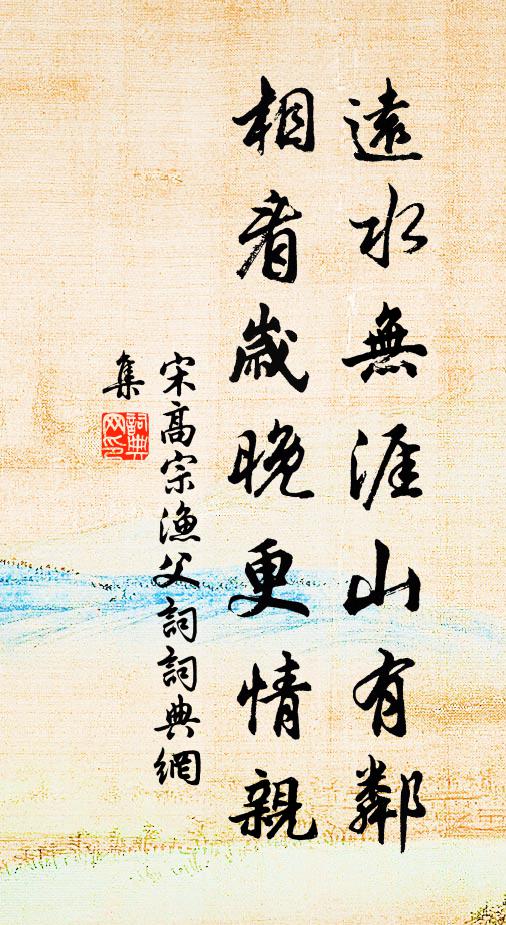 遠水無涯山有鄰
相看歲晚更情親
宋高宗漁父詞詞典網
集
詞典網印